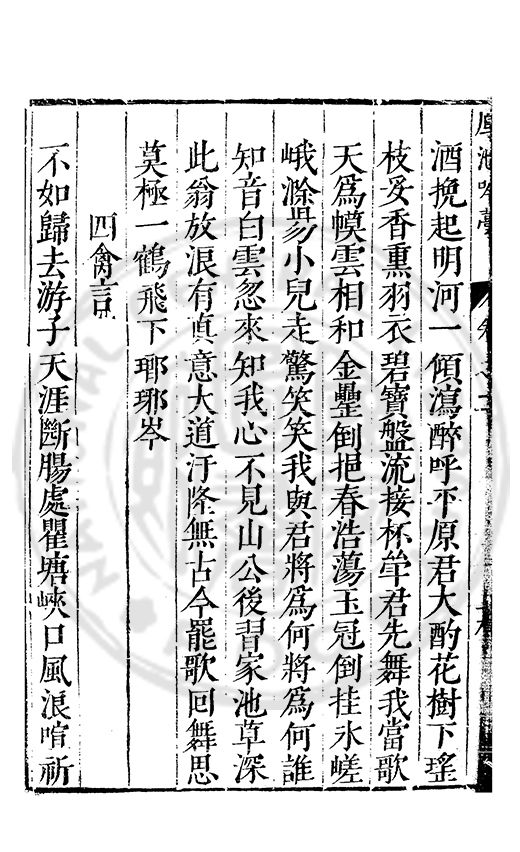 酒挽起明河一傾瀉醉呼平原君大酌花樹下瑤
枝妥香熏羽衣碧寶盤流接杯斝君先舞我當歌
天爲幙雲相和金罍倒挹春浩蕩玉冠倒挂氷嵯
峨滁昜小兒走驚笑笑我與君將爲何將爲何誰
知音白雲忽來知我心不見山公後習家池草深
此翁放浪有眞意大道汙隆無古今罷歌回舞思
莫極一鶴飛下琊琊岑
四禽言
不如歸去游子天涯斷腸處瞿塘峽口風浪喧祈